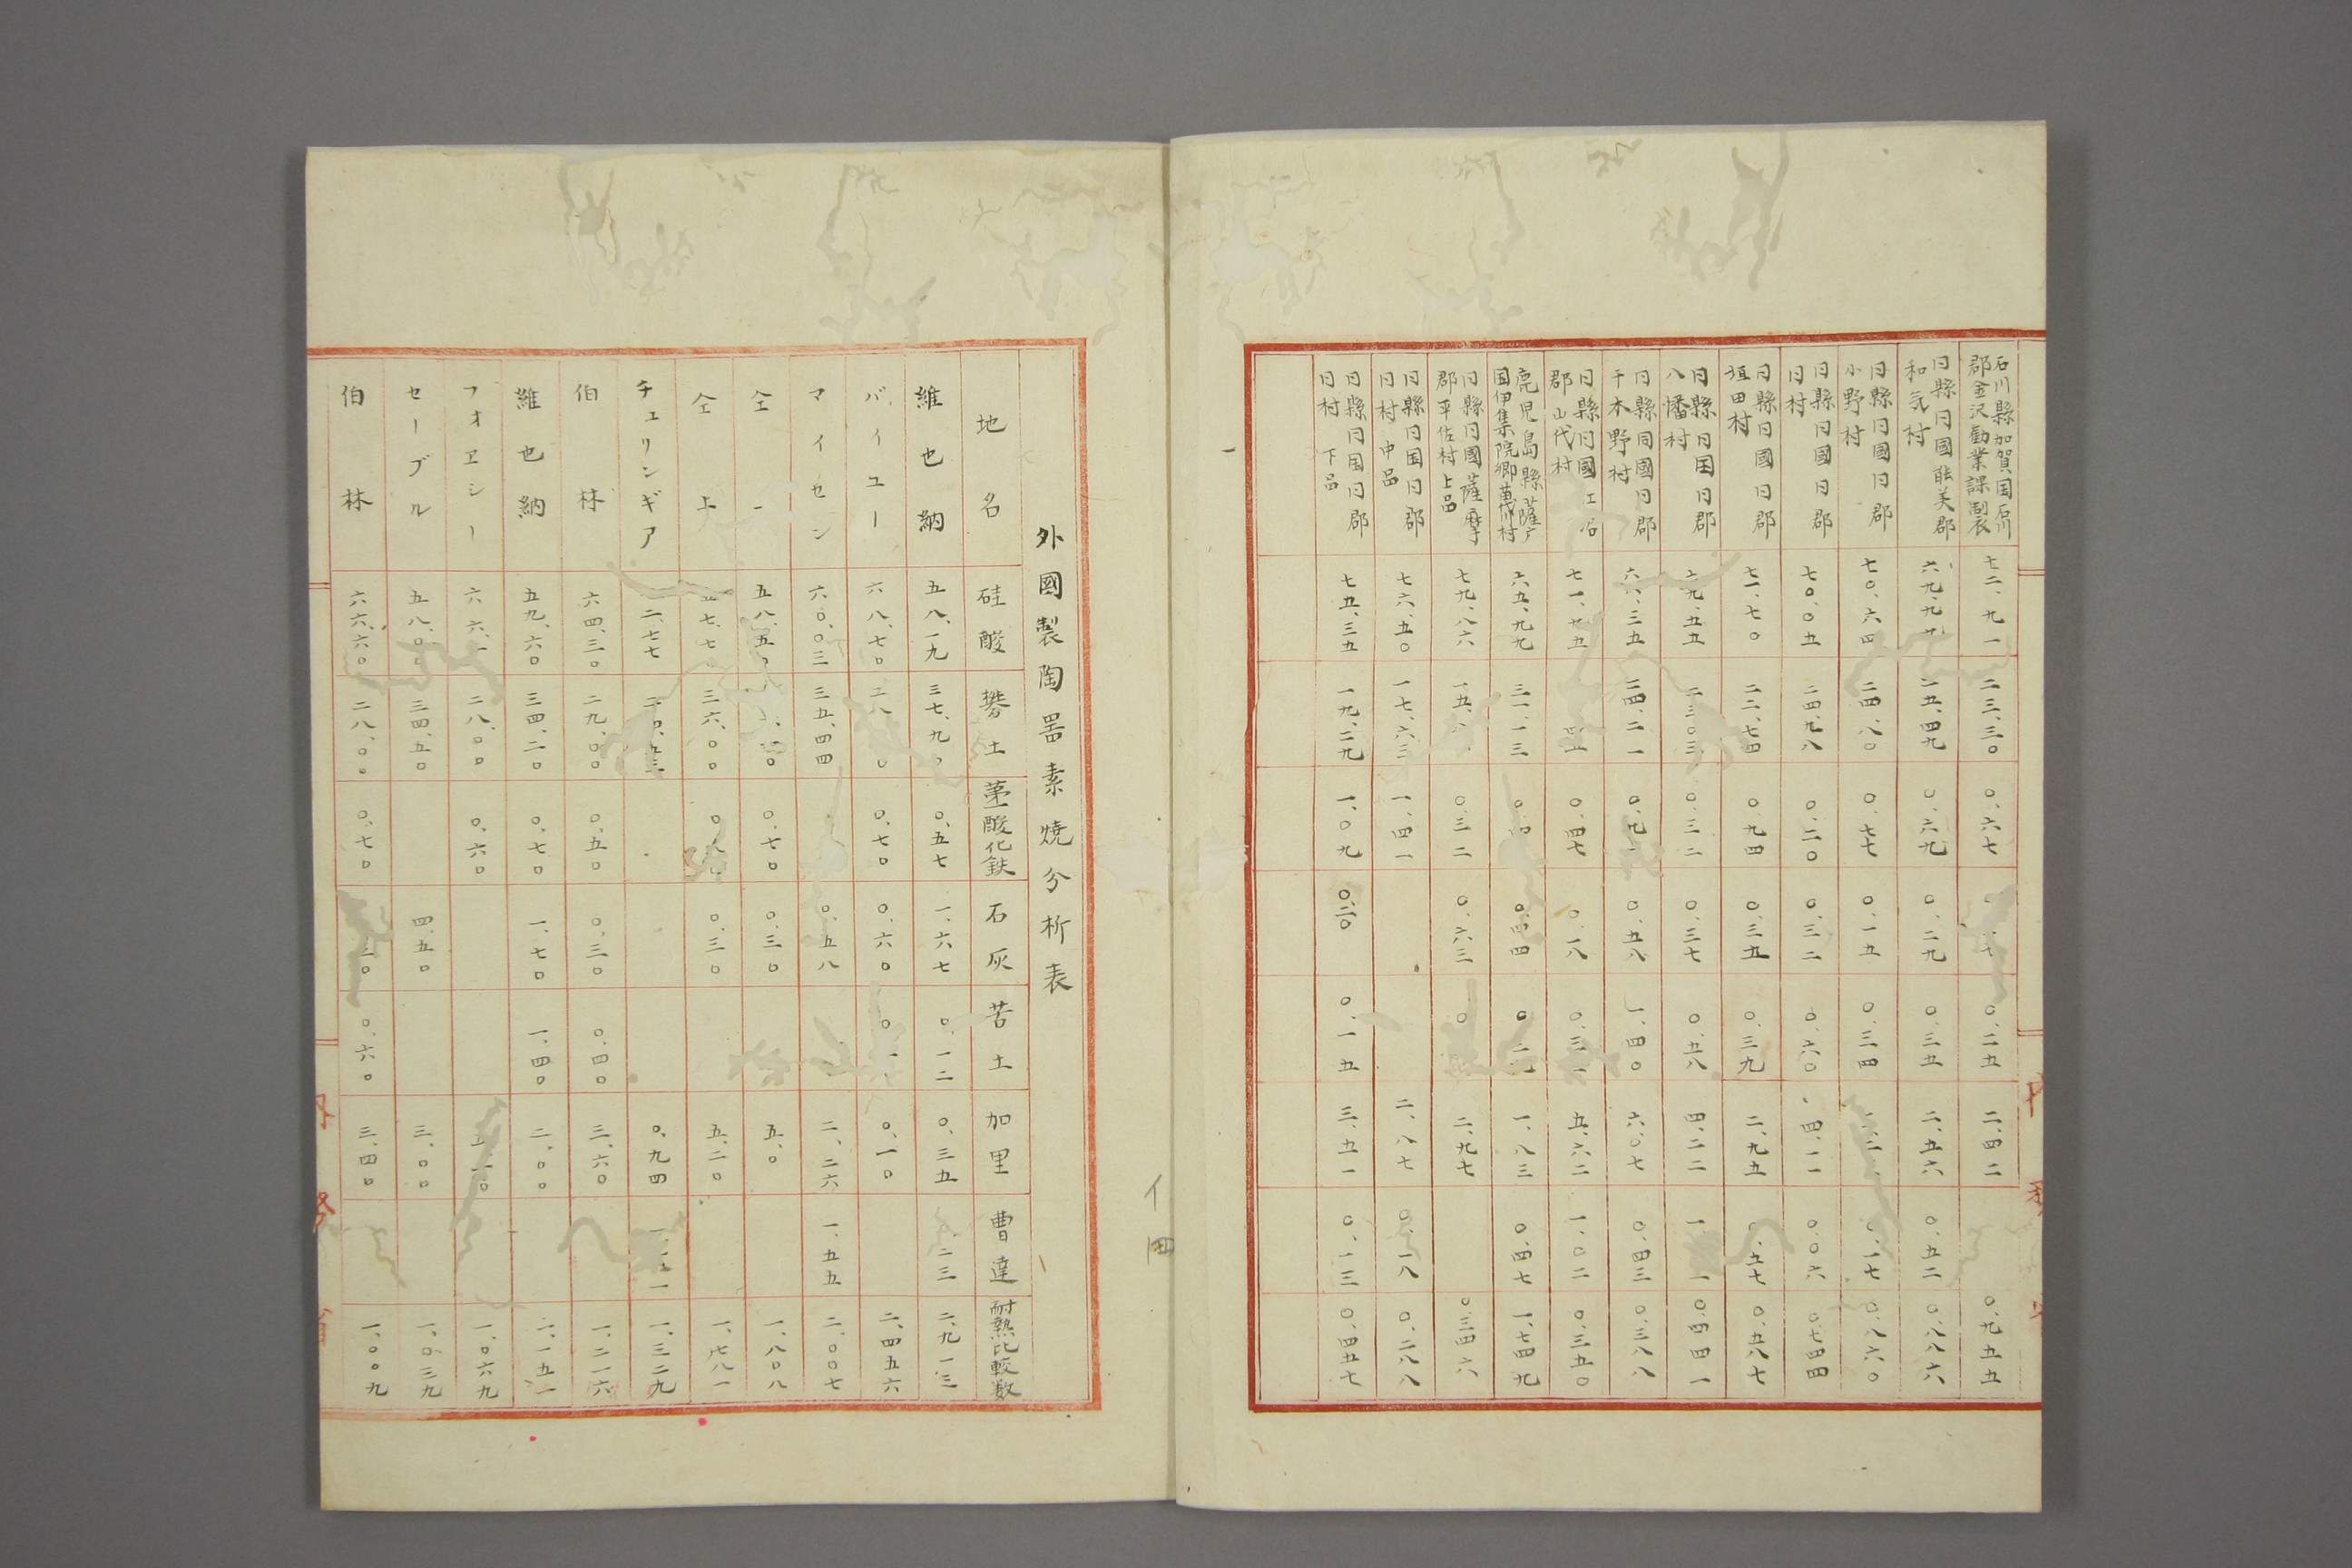 石川縣加賀国石川
郡金沢勧業課製
七二、九一
二三、三〇
〇、六七
〇、二五
二、四二
〇、九五五
日縣日國能美郡
和気村
六九、九九
二五、四九
〇、六九
〇、二九
〇、三五
二、五六
〇、五二
〇、八八六
日縣日國日郡
小野村
七〇、六四
二四、八〇
〇、七七
〇、一五
〇、三四
〇、一七
〇、八六〇
日縣日國日郡
日村
七〇、〇五
二四、九八
〇、二〇
〇、三二
〇、六〇
四、一一
〇、〇六
〇、七四四
日縣日國日郡
垣田村
七一、七〇
二二、七四
〇、九四
〇、三五
〇、三九
二、九五
〇、五七
〇、五八七
日縣日国日郡
八幡村
六九、五五
二三、〇三
〇、三二
〇、三七
〇、五八
四、二二
〇、四四一
日縣同國日郡
千木野村
六六、三五
二四、二一
〇、五八
一、四〇
六、〇七
〇、四三
〇、三八八
日縣日國江沼
郡山代村
〇、四七
〇、一八
〇、三一
五、六二
一、〇二
〇、三五〇
鹿児島縣薩广
国伊集院郷苗代川村
六五、九九
三一、一三
〇、四四
一、八三
〇、四七
一、七四九
日縣日國薩摩
郡平佐村上品
七九、八六
〇、三二
〇、六三
二、九七
〇、三四六
日縣日国日郡
日村中品
七六、五〇
一七、六三
一、四一
二、八七
〇、一八
〇、二八八
日縣日国日郡
日村下品
七五、三五
一九、二九
一、〇九
〇、二〇
〇、一五
三、五一
〇、一三
〇、四五七
外國製陶器素燒分析表
地名
硅酸
礬土
第二酸化鉄
石灰
苦土
加里
曹達
耐熱比較数
維也納
五八、一九
三七、九
〇、五七
一、六七
〇、一二
〇、三五
二三
二、九一三
バイユー
六八、七〇
〇、七〇
〇、六〇
〇、一〇
二、四五六
マイセン
六〇、〇三
三五、四四
〇、五八
二、二六
一、五五
二、〇〇七
仝
五八、五
〇、七〇
〇、三〇
五、〇
一、八〇八
仝上
三六、〇〇
〇、三〇
五、二〇
一、七八一
チュリンギア
二、七七
〇、九四
一、三二九
伯林
六四、三〇
二九、〇〇
〇、五〇
〇、三〇
〇、四〇
三、六〇
一、二一六
維也納
五九、六〇
三四、二〇
〇、七〇
一、七〇
一、四〇
二、〇〇
二、一五一
フオヱシー
六六、
二八、〇〇
〇、六〇
一、〇六九
セーブル
五八、〇〇
三四、五〇
四、五〇
三、〇〇
一、〇三九
伯林
六六、六〇
二八、〇〇
〇、七〇
〇、六〇
三、四〇
一、〇〇九
イ四